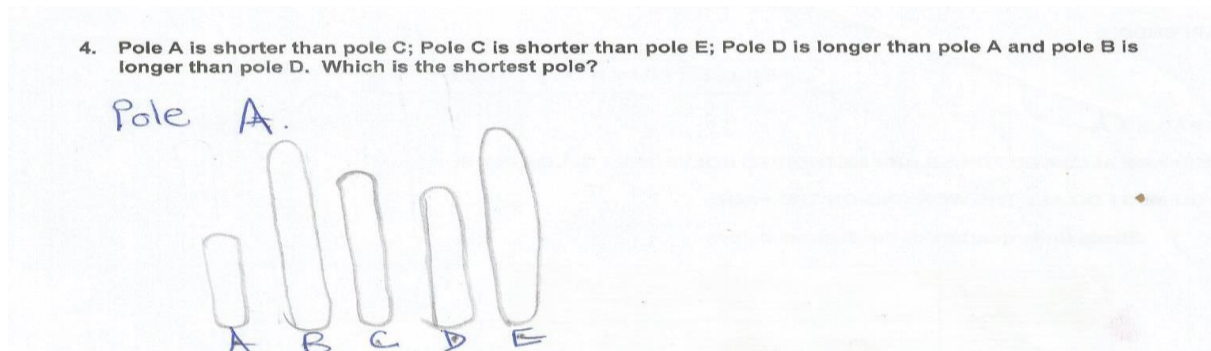 4. Pole A is shorter than pole C; Pole C is shorter than pole E; Pole D is longer than pole A and pole B is
longer than pole D. Which is the shortest pole?
Pole A.
A B C D E